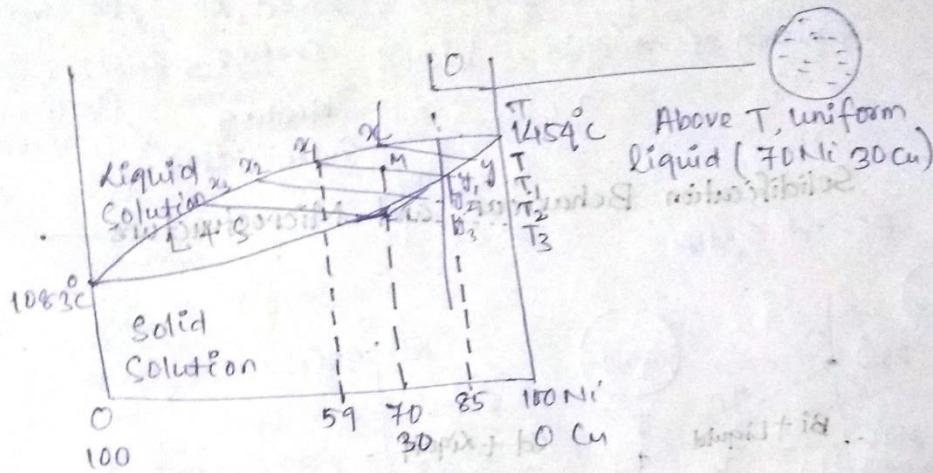 O
T
1454°C
Above T, uniform
liquid (70Ni 30Cu)
x1
x
x2
M
Liquid
x3
Solution
L + S
y
y1
T
T1
T2
T3
1083°C
Solid
Solution
0
59
70
85
100 Ni
100
30
0 Cu